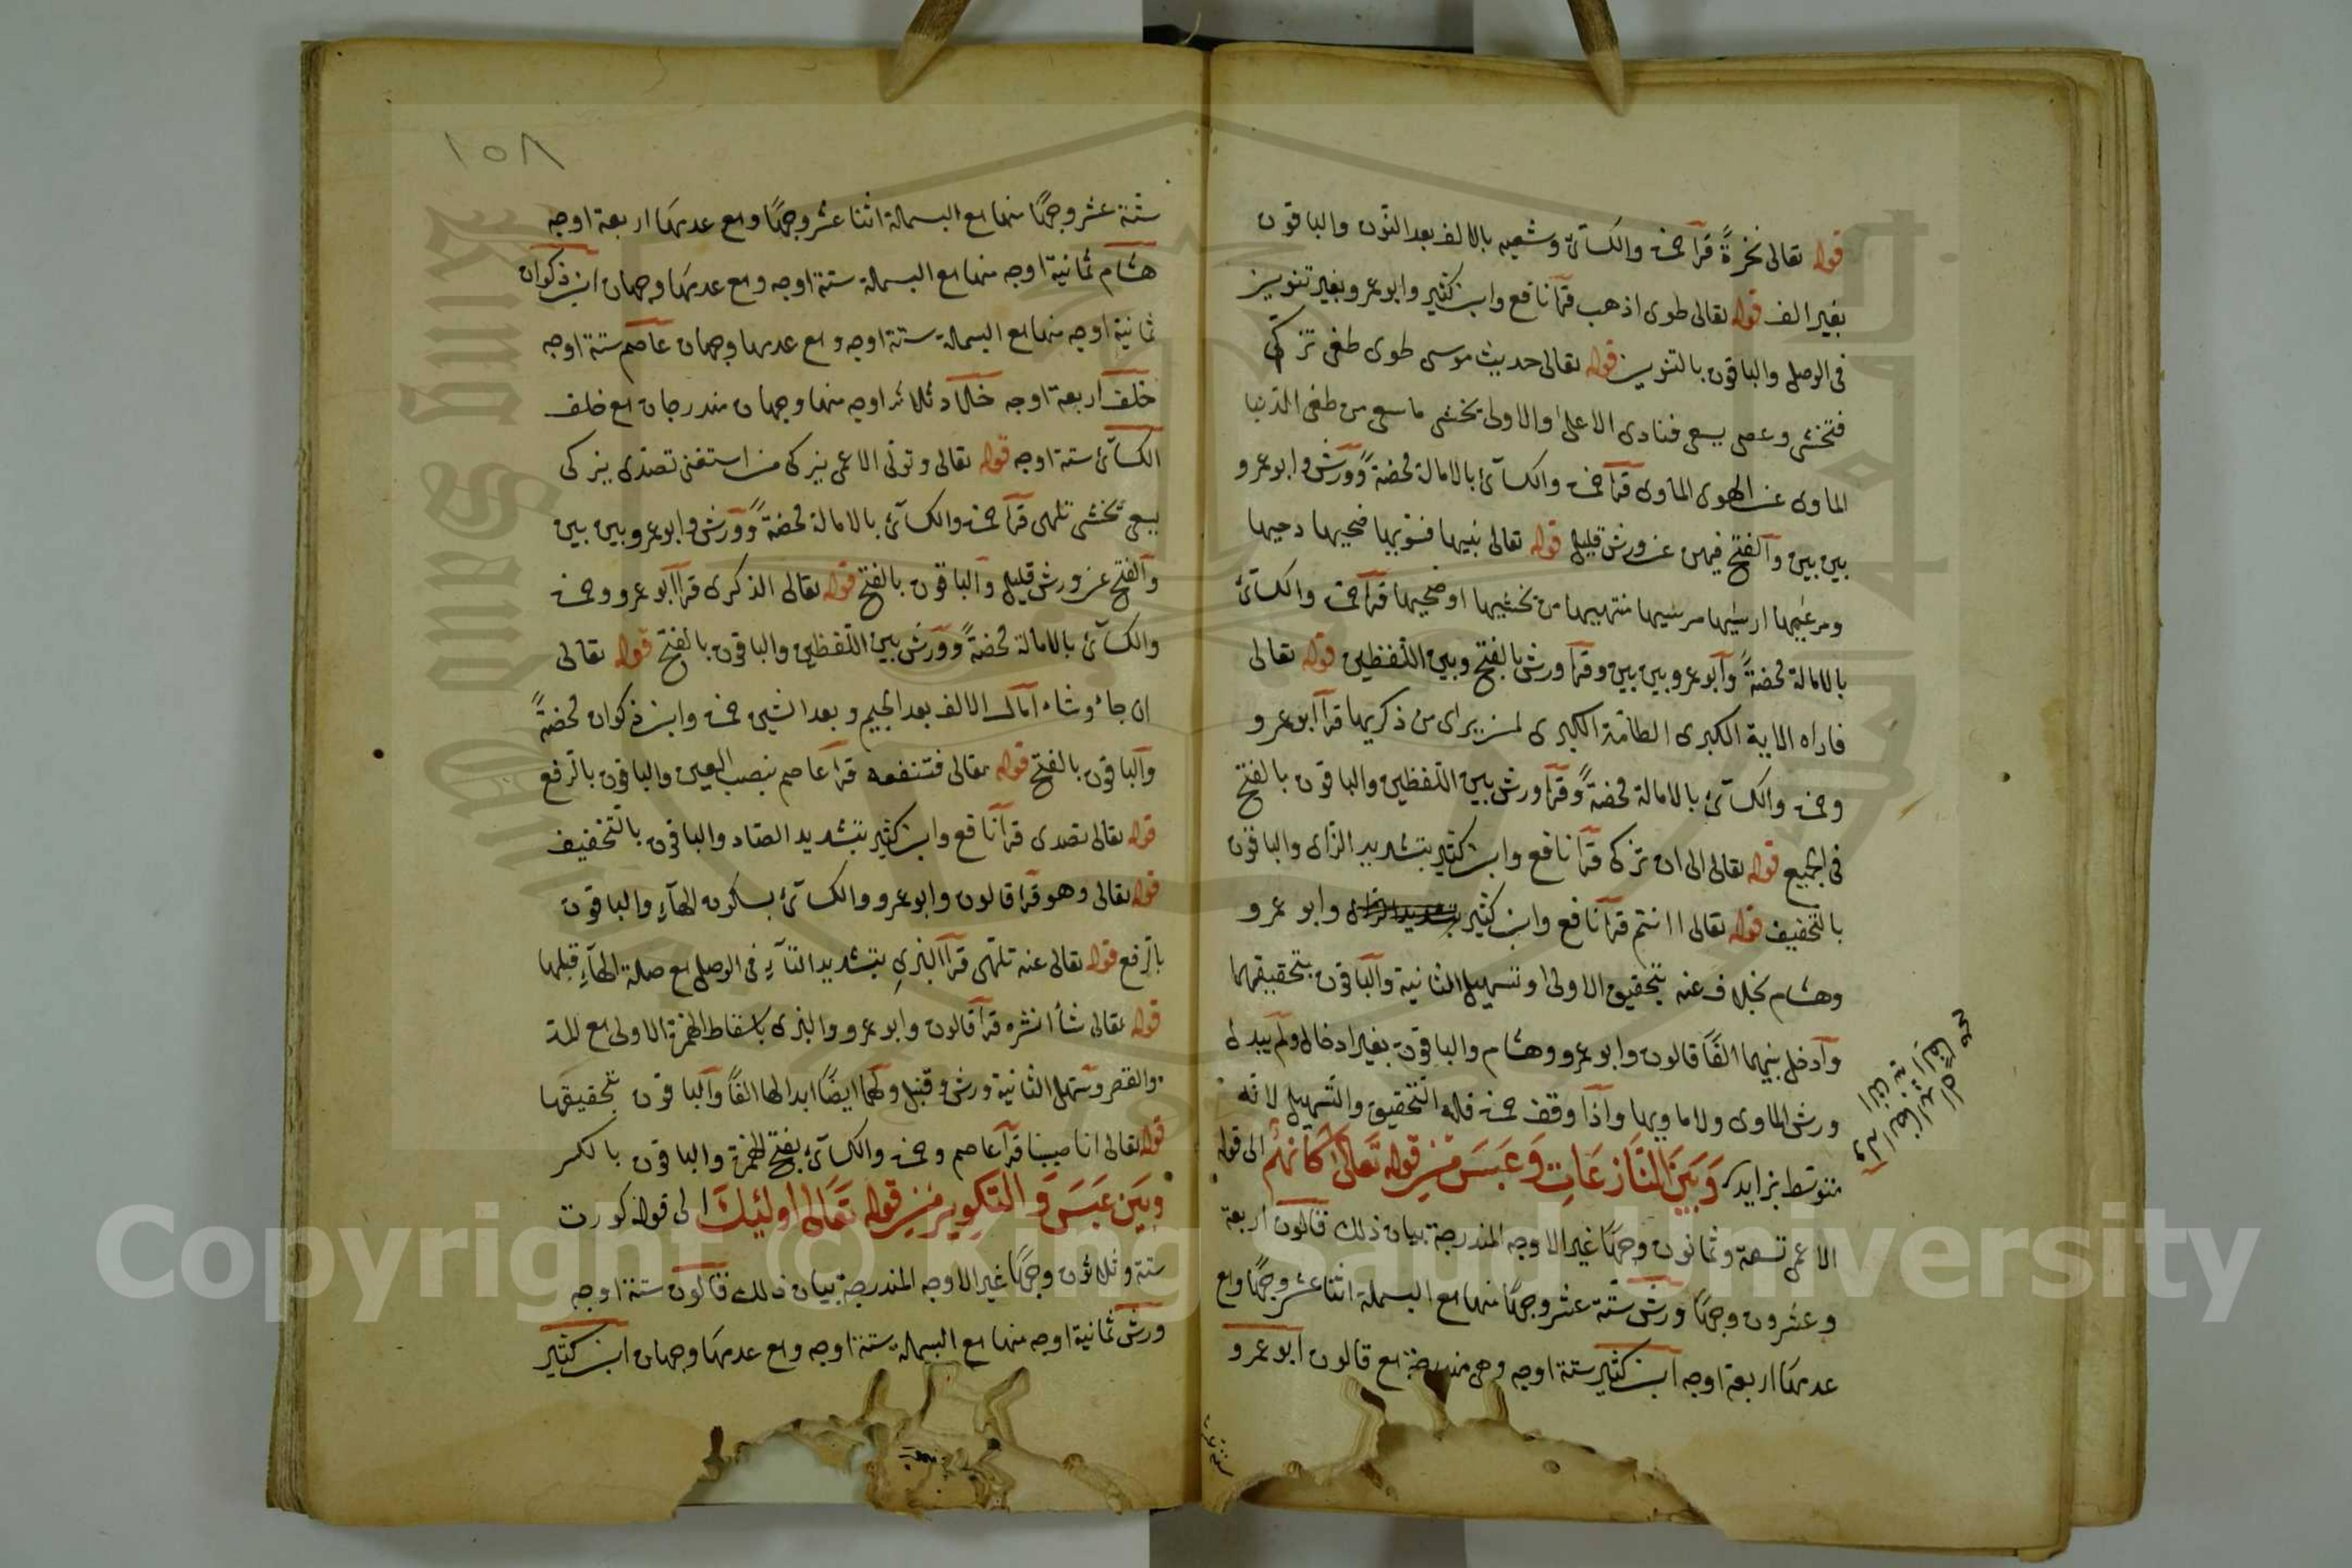 قوله تعالى نخرةً قرأ حمزة والكسآئىّ وشعبه بالالف بعد النّون والباقون
بغير الف قوله تعالى طوى اذهب قرأ نافع وابن كثير وابو عمرو بغير تنوين
فى الوصل والباقون بالتنوين قوله تعالى حديث موسى طوى طغى تزكّى
فتخشى وعصى يسعى فنادى الاعلى والاولى يخشى ما سعى من طغى الدّنيا
الماوى عن الهوى الماوى قرأ حمزة والكسآئ بالامالة محضةً وورش وابو عمرو
بين بين والفتح فيهن عن ورش قليل قوله تعالى بنيها فسوّيها ضحيها دحيها
ومرعيها ارسيها مرسيها منتهيها من يخشيها اوضحيها قرأ حمزة والكسآئ
بالامالة محضةً وابو عمرو بين بين وقرأ ورش بالفتح وبين اللّفظين قوله تعالى
فاراه الاية الكبرى الطامّة الكبرى لمن يرى من ذكريها قرأ ابو عمرو
وحمزة والكسآئ بالامالة محضةً وقرأ ورش بين اللّفظين والباقون بالفتح
فى الجميع قوله تعالى الى ان تزكى قرأ نافع وابن كثير بتشديد الزّاى والباقون
بالتّخفيف قوله تعالى اانتم قرأ نافع وابن كثير وابو عمرو
وهشام بخلاف عنه بتحقيق الاولى وتسهيل الثانية والباقون بتحقيقهما
وأدخل بينهما الفًا قالون وابو عمرو وهشام والباقون بغير ادخال ولم يبدل
ورش الماوى ولا ماويها واذا وقف حمزة فله التّحقيق والتّسهيل لانّه
متوسّط بزايد وَبَيْنَ النَّازِعَاتِ وَعَبَسَ مِنْ قَوْلِهِ تَعَالَى كَأَنَّهُمْ الى قوله
الاعمى تسعة وثمانون وجهًا غير الاوجه المندرجة بيان ذلك قالون اربعة
وعشرون وجهًا ورش ستّة عشر وجهًا منها مع البسملة اثنا عشر وجهًا ومع
عدمها اربعة اوجه ابن كثير ستة اوجه وهى مندرجة مع قالون ابو عمرو
ستّة عشر وجهًا منها مع البسملة اثنا عشر وجهًا ومع عدمها اربعة اوجه
هشام ثمانية اوجه منها مع البسملة ستة اوجه ومع عدمها وجهان ابن ذكوان
ثمانية اوجه منها مع البسملة ستة اوجه ومع عدمها وجهان عاصم ستة اوجه
خلف اربعة اوجه خلاد ثلاثة اوجه منها وجهان مندرجان مع خلف
الكسآئ ستة اوجه قوله تعالى وتولى الاعمى يزكى من استغنى تصدّى يزكى
يسعى يخشى تلهى قرأ حمزة والكسآئ بالامالة محضةً وورش وابو عمرو بين بين
والفتح عن ورش قليل والباقون بالفتح قوله تعالى الذكرى قرأ ابو عمرو وحمزة
والكسآئ بالامالة محضةً وورش بين اللّفظين والباقون بالفتح قوله تعالى
ان جاء وشاء امال الالف بعد الجيم وبعد الشين حمزة وابن ذكوان محضةً
والباقون بالفتح قوله تعالى فتنفعه قرأ عاصم بنصب العين والباقون بالرّفع
قوله تعالى تصدى قرأ نافع وابن كثير بتشديد الصّاد والباقون بالتّخفيف
قوله تعالى وهو قرأ قالون وابو عمرو والكسآئ بسكون الهآء والباقون
بالرّفع قوله تعالى عنه تلهّى قرأ البزى بتشديد التآء فى الوصل مع صلة الهآء قبلها
قوله تعالى شأ انشره قرأ قالون وابو عمرو والبزى باسقاط الهمزة الاولى مع المد
والقصر وسهل الثانية ورش وقنبل ولهما ايضًا ابدالها الفًا والباقون بتحقيقها
قوله تعالى انا صببنا قرأ عاصم وحمزة والكسآئ بفتح الهمزة والباقون بالكسر
وَبَيْنَ عَبَسَ وَالتَّكْوِيرِ مِنْ قَوْلِهِ تَعَالَى أُولَئِكَ الى قوله كورت
ستة وثلاثون وجهًا غير الاوجه المندرجة بيان ذلك قالون ستة اوجه
ورش ثمانية اوجه منها مع البسملة ستة اوجه ومع عدمها وجهان ابن كثير
١٥٨
Copyright © King Saud University